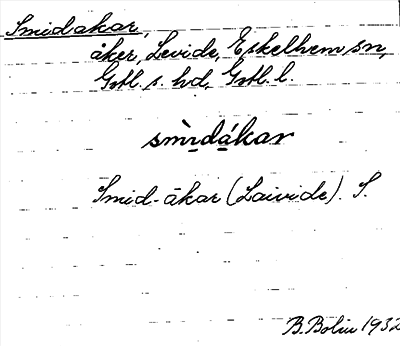 Smidakar,
åker, Levide, Eskelhem sn,
Gotl. s. hd, Gotl. l.
smìdákar
Smid-åkar (Laivide). S.
B. Bolin 1932